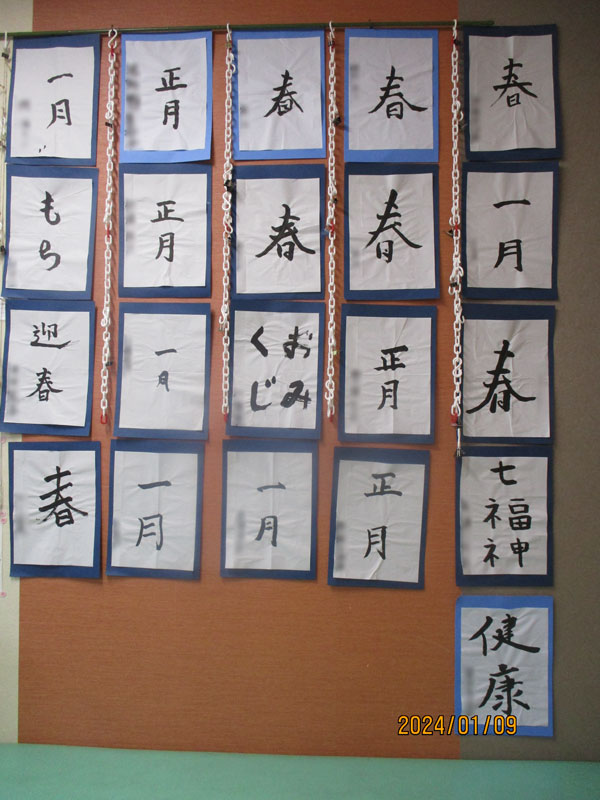 一月
正月
春
春
春
もち
正月
春
春
一月
迎春
一月
おみ
くじ
正月
春
春
一月
一月
正月
七福神
健康
2024/01/09